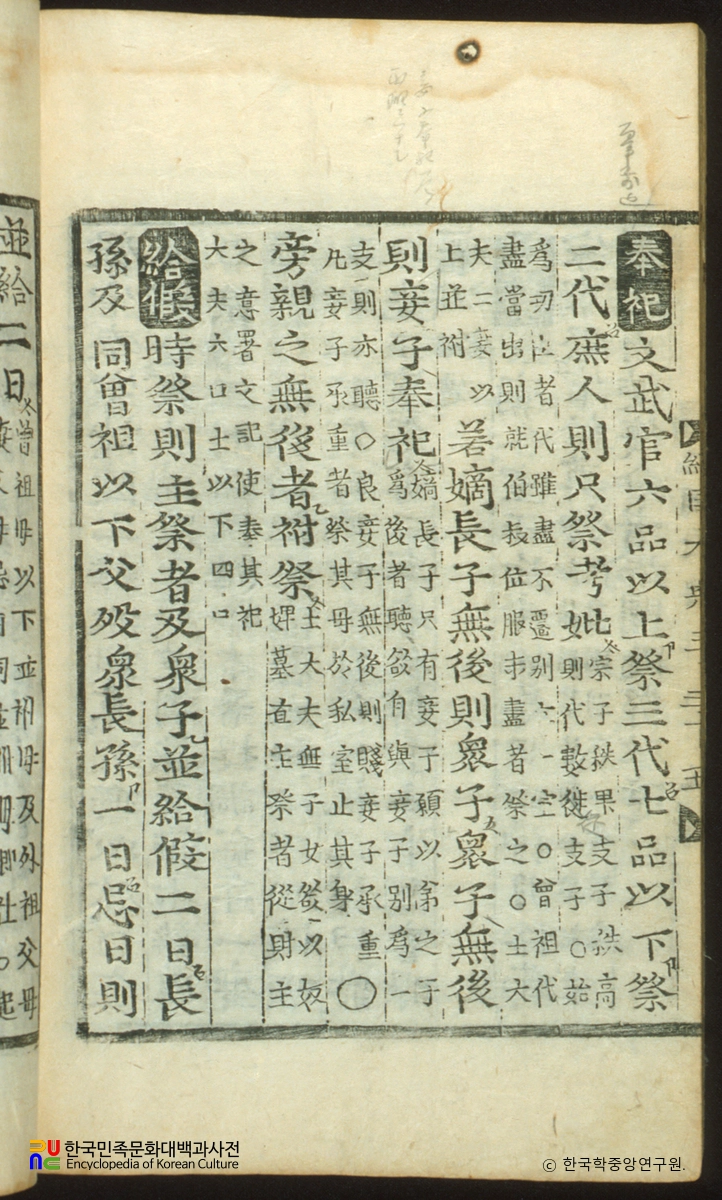 奉祀 文武官六品以上祭三代七品以下祭
二代庶人則只祭考妣
宗子秩卑支子秩高
則代數從支子○始
爲功臣者代雖盡不遷別立一室○曾祖代
盡當出則就伯叔位服未盡者祭之○士大
夫二妻以
上並祔
若嫡長子無後則衆子衆子無後
則妾子奉祀
嫡長子只有妾子願以弟之子
爲後者聽欲自與妾子別爲一
支則亦聽○良妾子無後則賤妾子承重
凡妾子承重者祭其母於私室止其身
○
旁親之無後者祔祭
士大夫無子女欲以奴
婢墓直主祭者從財主
之意署文記使奉其祀
大夫六口士以下四口
給假 時祭則主祭者及衆子並給假二日長
孫及同曾祖以下父歿衆長孫一日忌日則
並給二日
曾祖母以下並祖母及外祖父母
한국민족문화대백과사전
Encyclopedia of Korean Culture
ⓒ 한국학중앙연구원.